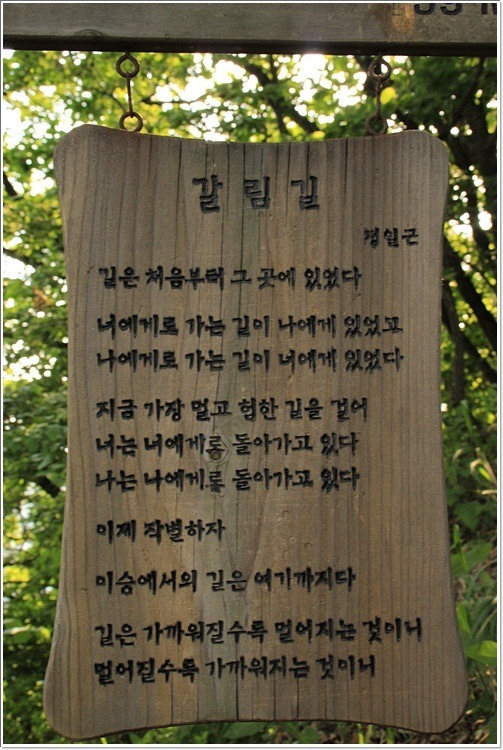 갈림길
정일근
길은 처음부터 그 곳에 있었다
너에게로 가는 길이 나에게 있었고
나에게로 가는 길이 너에게 있었다
지금 가장 멀고 험한 길을 걸어
너는 너에게로 돌아가고 있다
나는 나에게로 돌아가고 있다
이제 작별하자
이승에서의 길은 여기까지다
길은 가까워질수록 멀어지는 것이니
멀어질수록 가까워지는 것이니